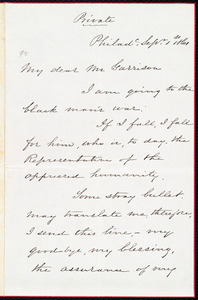 Private
Philada. Sept. 1st 1861
My dear Mr Garrison
I am going to the
black man's war.
If I fall, I fall
for him, who is, to day, the
Representative of the
oppressed humanity.
Some stray bullet
may translate me, therefore,
I send this line – my
good-bye, my blessing,
the assurance of my